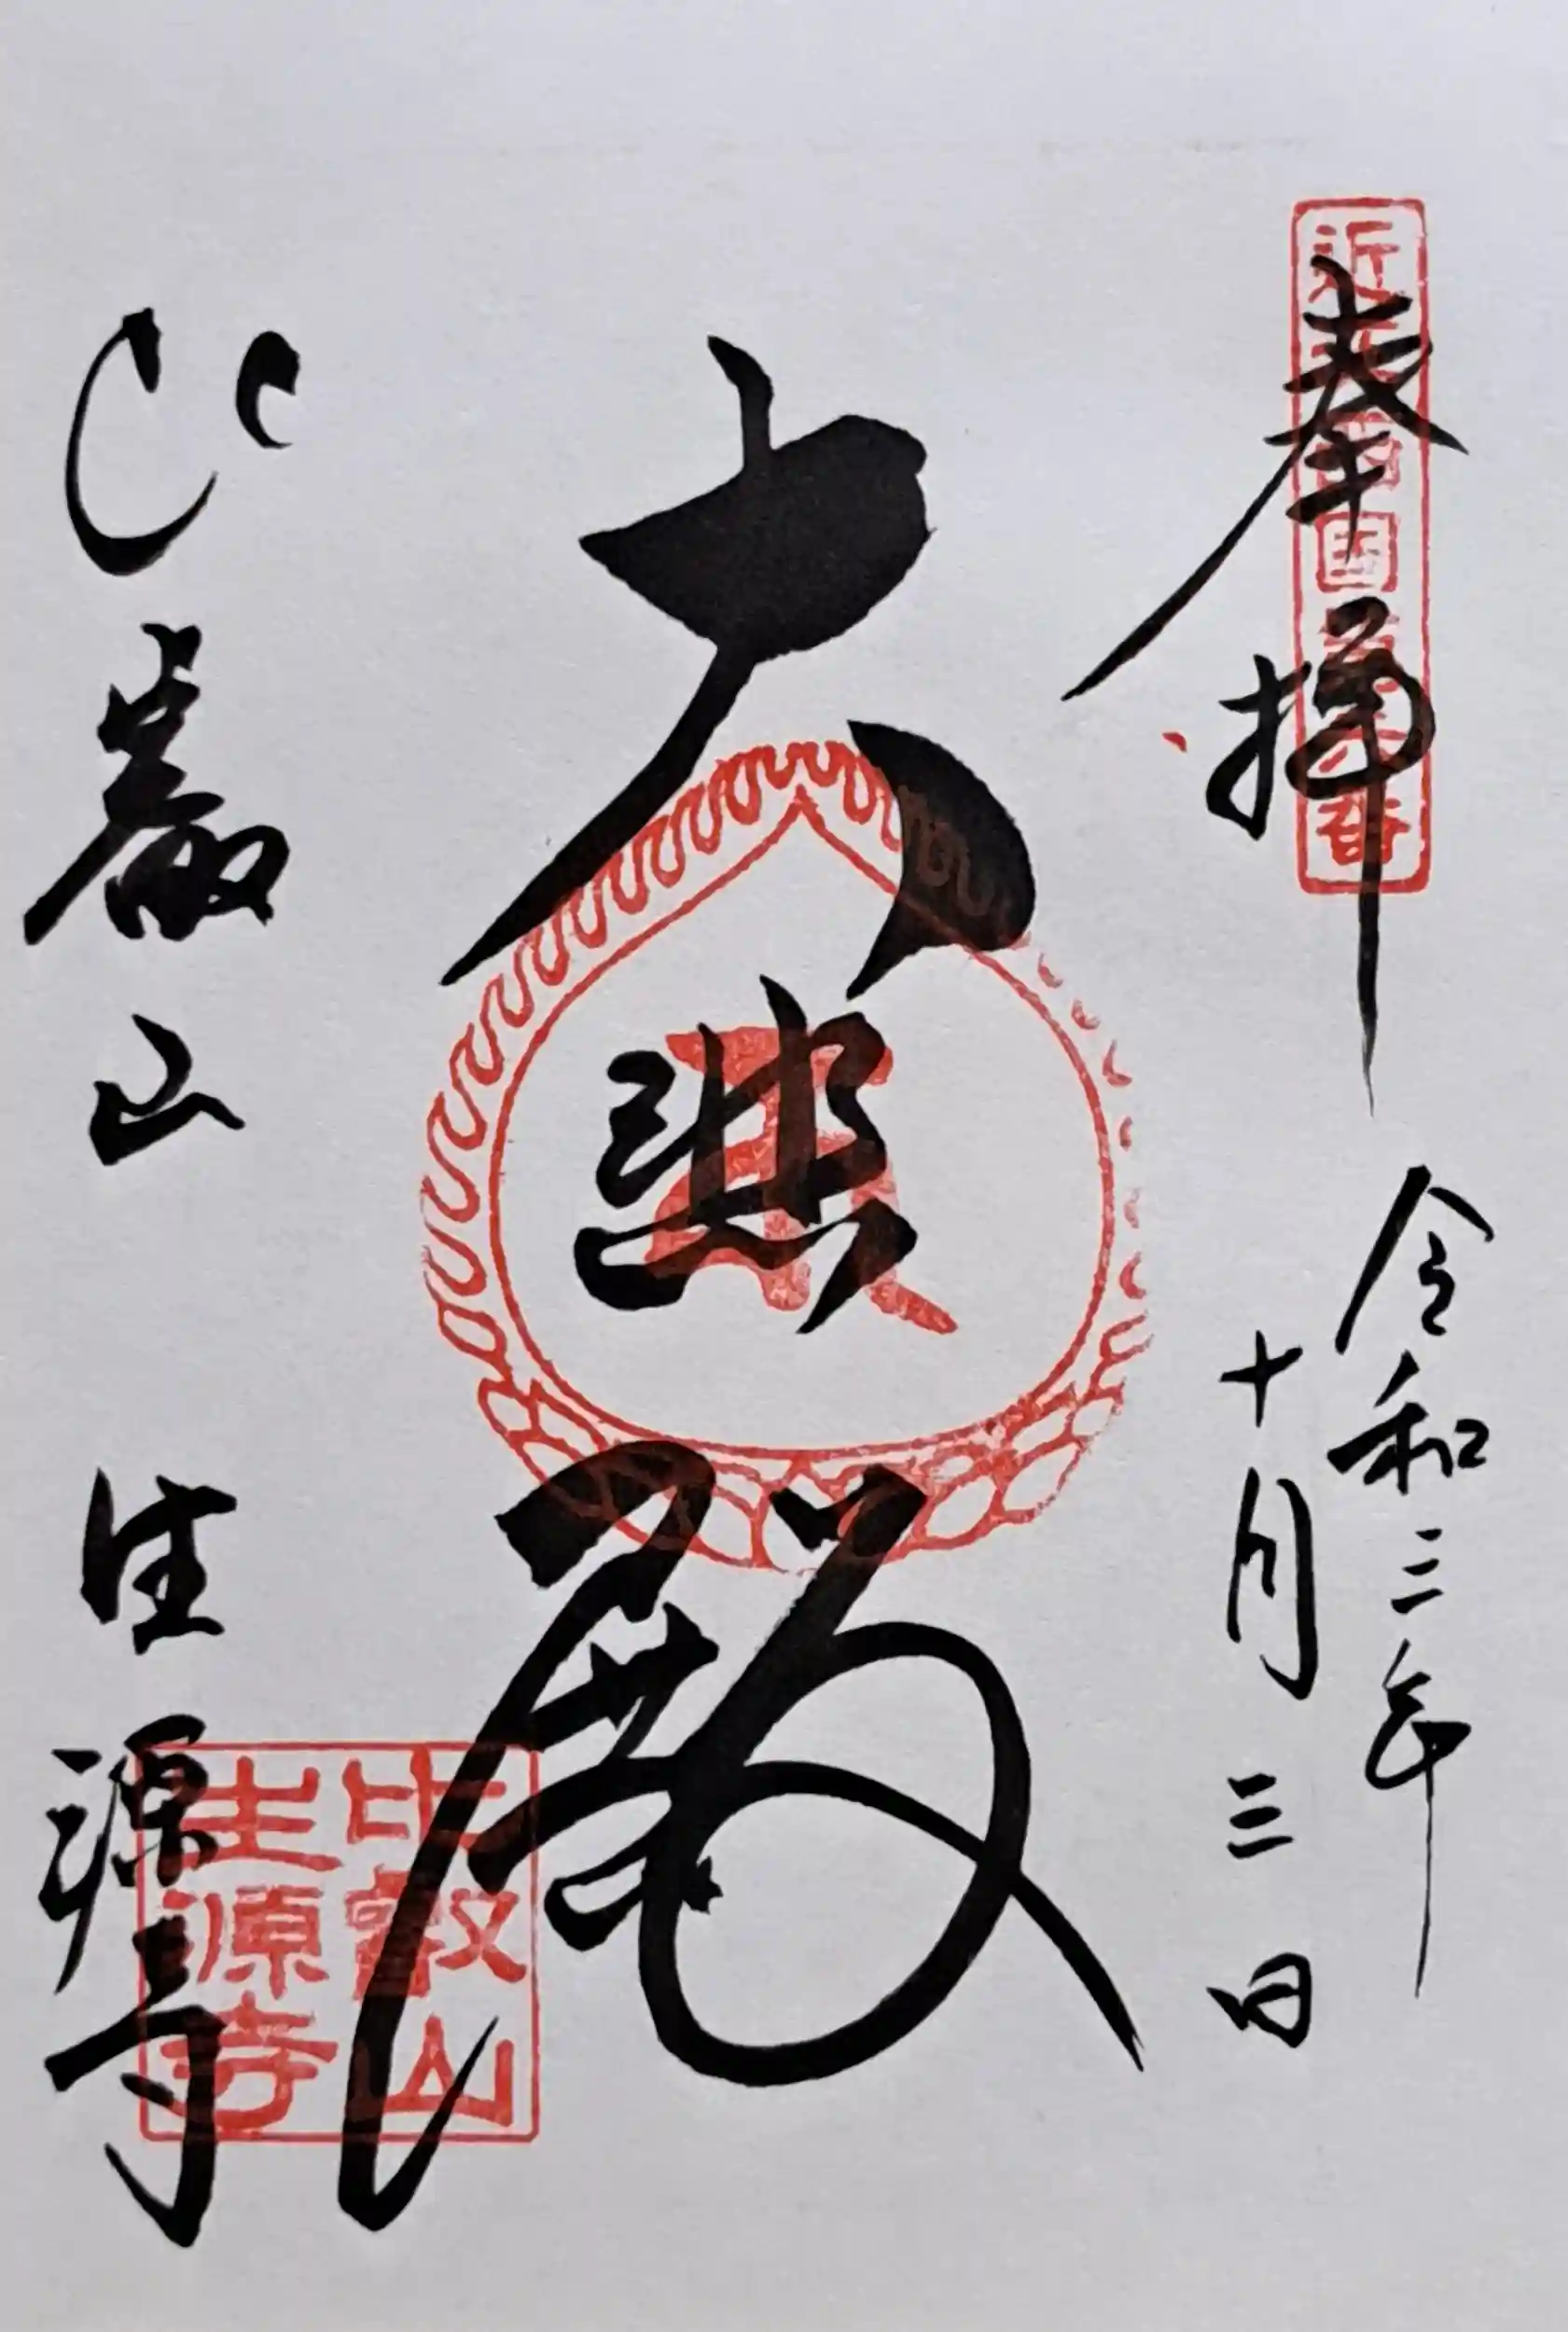 近江西国第六番
奉拝
令和二年
十月三日
大悲殿
比叡山 生源寺
比叡山
生源寺